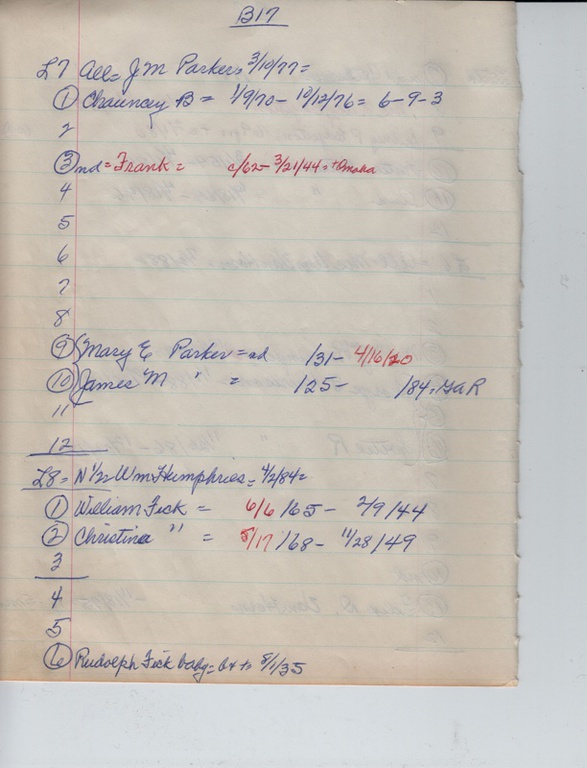 B17
L7 All = J M Parkers 3/10/77 =
① Chauncey B = 1/9/70 - 10/12/76 = 6-9-3
2
③ nd = Frank = c/62 - 3/21/44 = +Omaha
4
5
6
7
8
⑨ Mary E Parker = ad /31 - 4/16/20
⑩ James M " = /25 - /84 = GAR
11
12
L8 = N 1/2 = Wm Humphries = 4/2/84 =
① William Fick = 6/6/65 - 2/9/44
② Christina " = 5/17/68 - 11/28/49
3
4
5
⑥ Rudolph Fick baby = b + d 5/1/35